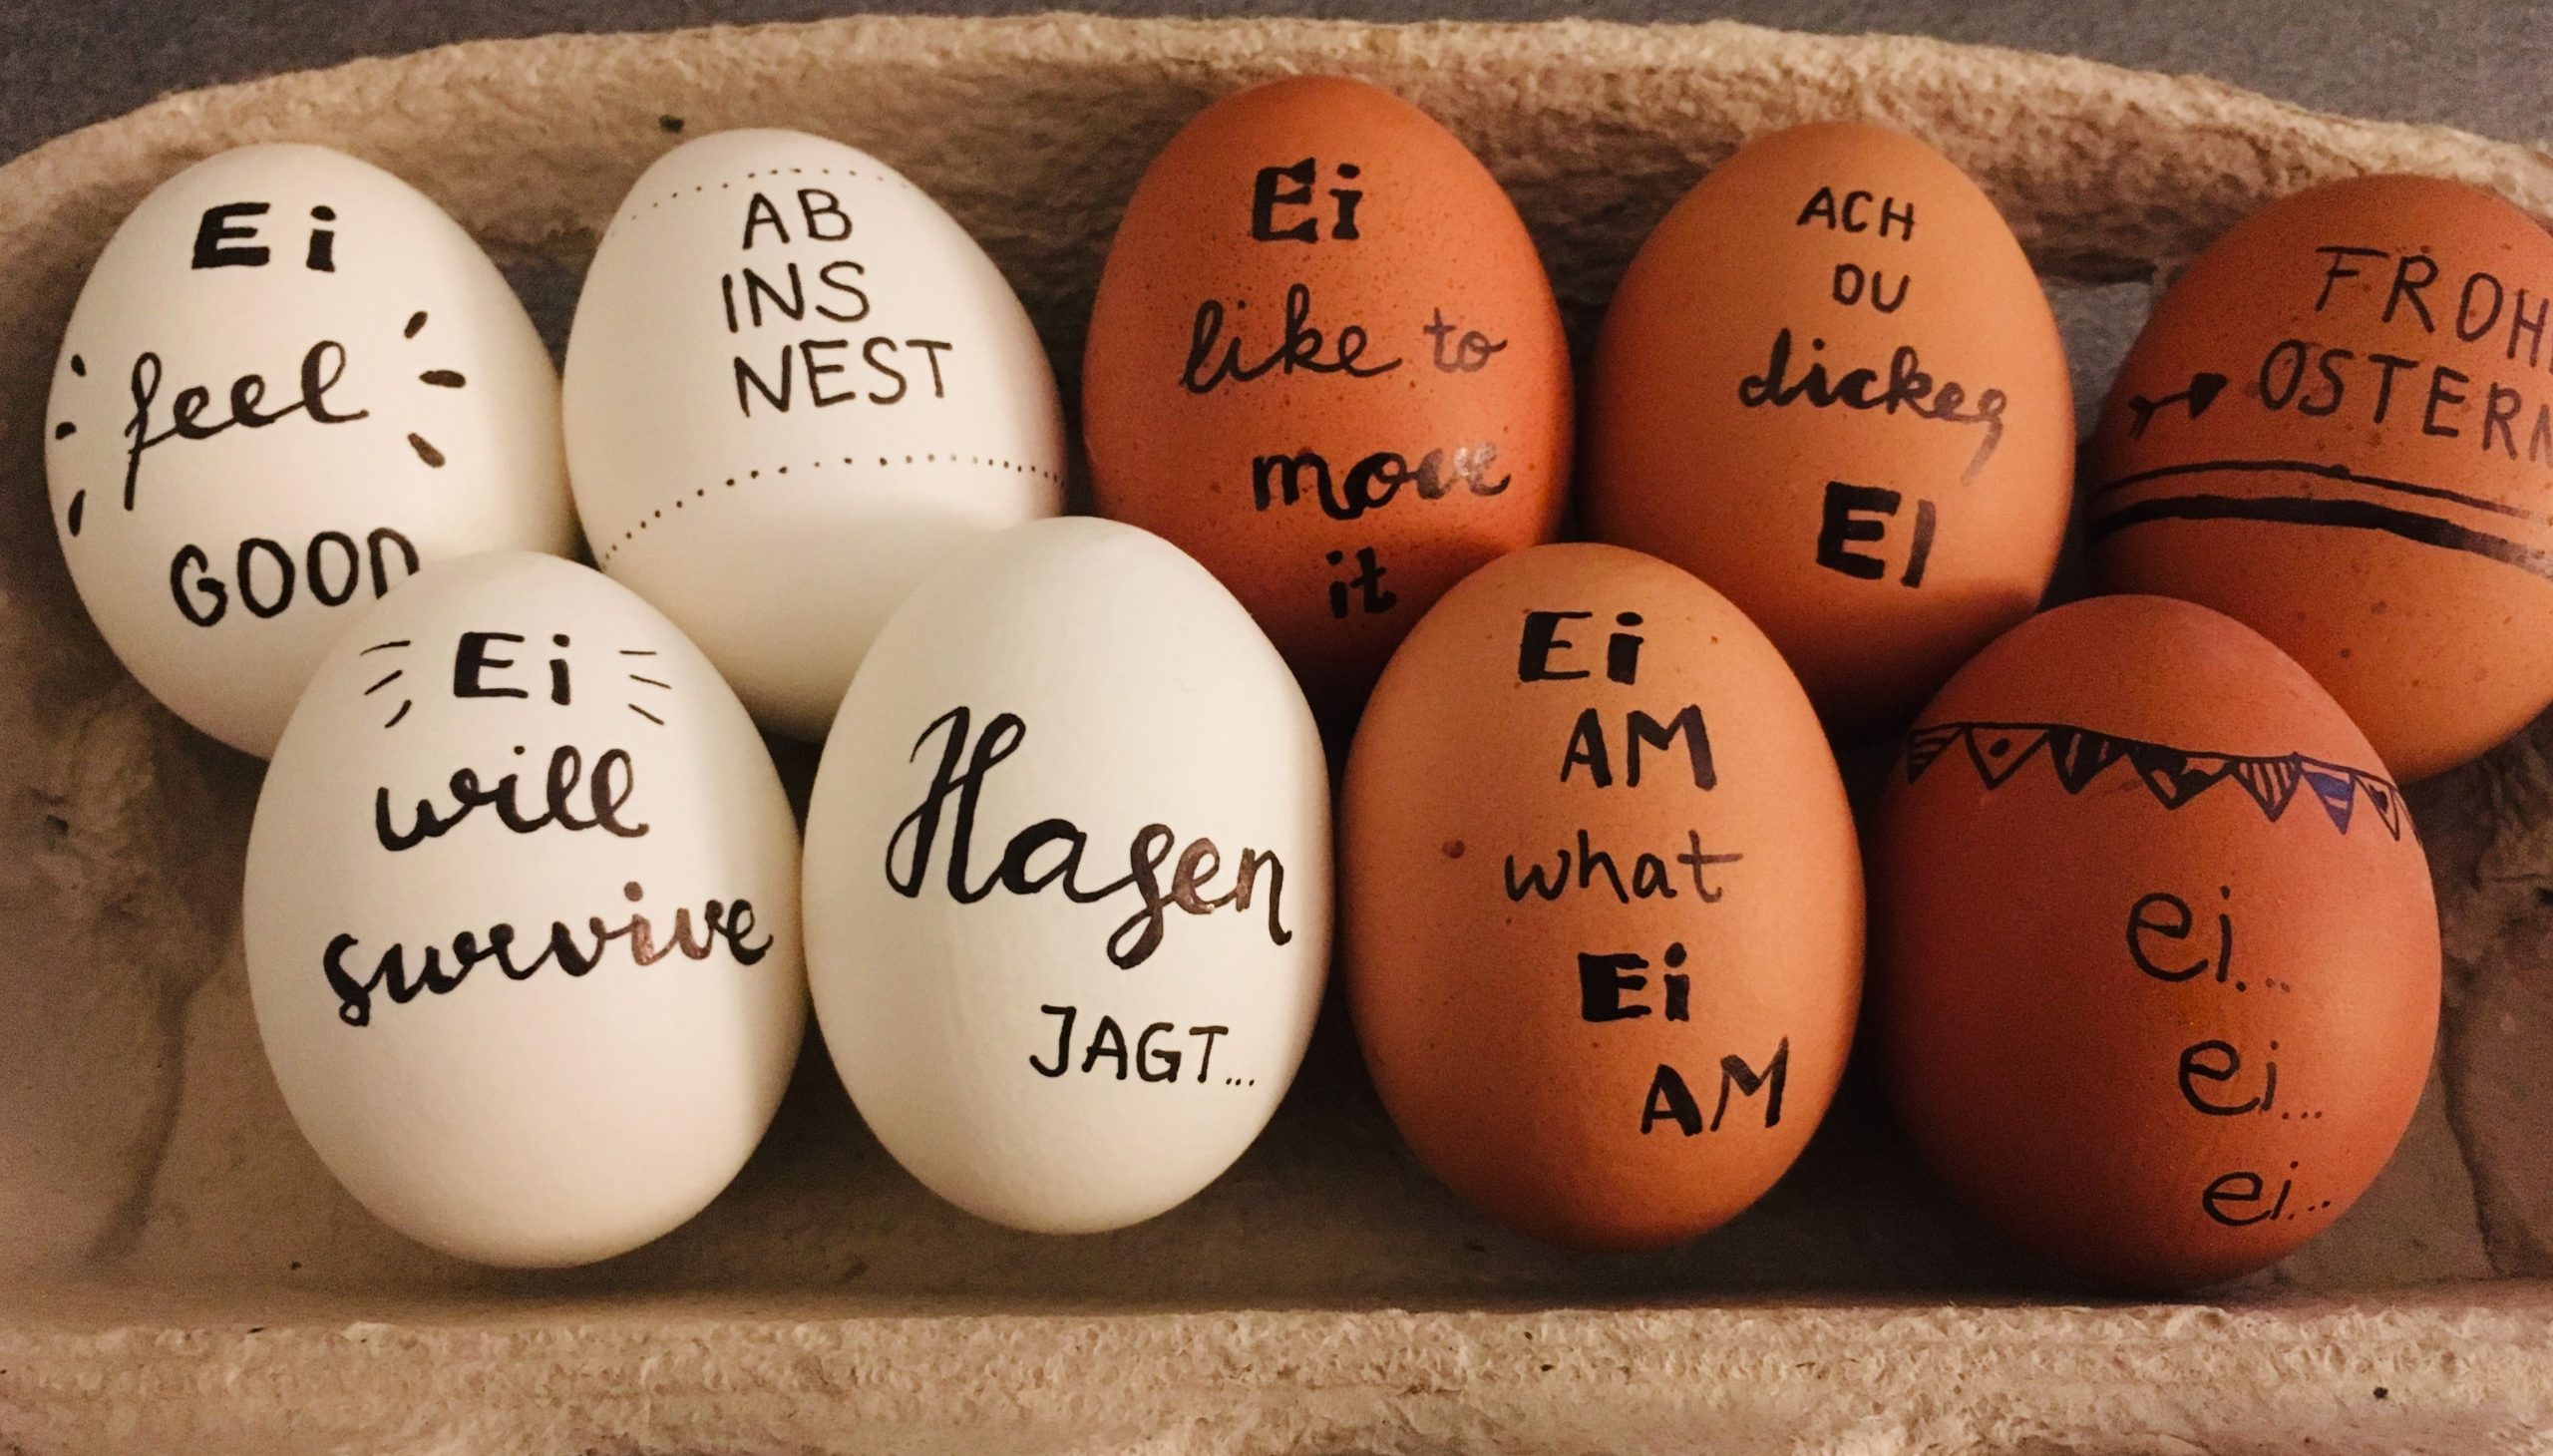 Ei
feel
GOOD
AB
INS
NEST
Ei
like to
move
it
ACH
DU
dickes
EI
FROH
OSTERN
Ei
will
survive
Hasen
JAGT...
Ei
AM
what
Ei
AM
ei...
ei...
ei...